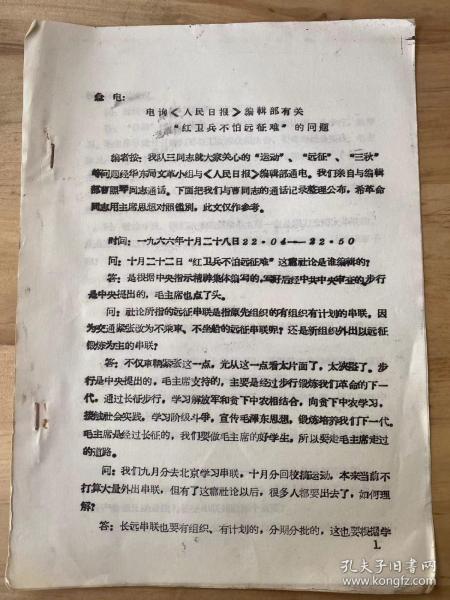 急 电：
电询《人民日报》编辑部有关
“红卫兵不怕远征难”的问题
编者按：我队三同志就大家关心的“运动”、“远征”、“三秋”
等问题经华东局文革小组与《人民日报》编辑部通电。我们亲自与编辑
部曹照琴同志通话。下面把我们与曹同志的通话记录整理公布，希革命
同志用主席思想对照鉴别，此文仅作参考。
时间：一九六六年十月二十八日22·04——22·50
问：十月二十二日“红卫兵不怕远征难”这篇社论是谁编的？
答：是根据中央指示精神集体编写的，写好后经中共中央审查的，步行
是中央提出的，毛主席也点了头。
问：社论所指的远征串联是指原先组织的有组织有计划的串联。因
为交通紧张改为不乘车、不坐船的远征串联呢？还是新组织外出以远征
锻炼为主的串联？
答：不仅车辆紧张这一点，光从这一点看太片面了，太狭隘了。步
行是中央提出的，毛主席支持的，主要是经过步行锻炼我们革命的下一
代，通过长征步行，学习解放军和贫下中农相结合，向贫下中农学习，
接触社会实践，学习阶级斗争，宣传毛泽东思想，锻炼培养我们下一代。
毛主席是经过长征的，我们要做毛主席的好学生，所以要走毛主席走过
的道路。
问：我们九月分去北京学习串联，十月分回校搞运动，本来当前不
打算大量外出串联，但有了这篇社论以后，很多人都要出去了，如何理
解？
答：长远串联也要有组织、有计划的，分期分批的，这也要根据学
1
孔夫子旧书网